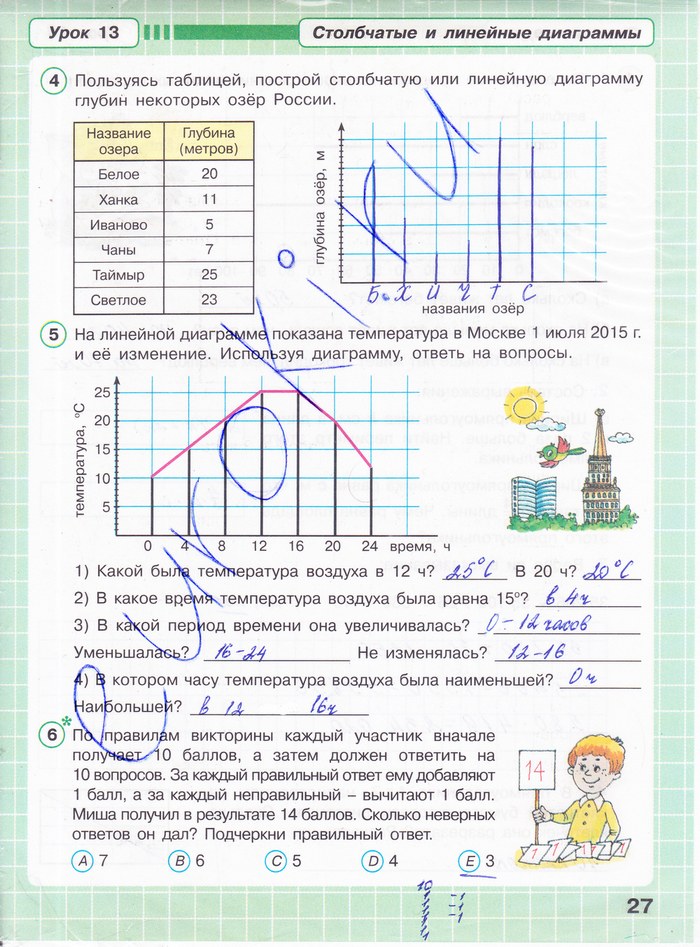 Урок 13
Столбчатые и линейные диаграммы
4 Пользуясь таблицей, построй столбчатую или линейную диаграмму
глубин некоторых озёр России.
Название озера Глубина (метров)
Белое 20
Ханка 11
Иваново 5
Чаны 7
Таймыр 25
Светлое 23
глубина озёр, м
Б. Х И Ч Т С
названия озёр
5 На линейной диаграмме показана температура в Москве 1 июля 2015 г.
и её изменение. Используя диаграмму, ответь на вопросы.
температура, °С
25
20
15
10
5
0 4 8 12 16 20 24 время, ч
1) Какой была температура воздуха в 12 ч? 25°С В 20 ч? 20°С
2) В какое время температура воздуха была равна 15°? в 4ч
3) В какой период времени она увеличивалась? 0-12 часов
Уменьшалась? 16-24 Не изменялась? 12-16
4) В котором часу температура воздуха была наименьшей? 0ч
Наибольшей? в 12 16ч
6* По правилам викторины каждый участник вначале
получает 10 баллов, а затем должен ответить на
10 вопросов. За каждый правильный ответ ему добавляют
1 балл, а за каждый неправильный – вычитают 1 балл.
Миша получил в результате 14 баллов. Сколько неверных
ответов он дал? Подчеркни правильный ответ.
14
1 1 1 1 1
A 7 B 6 C 5 D 4 E 3
10
27